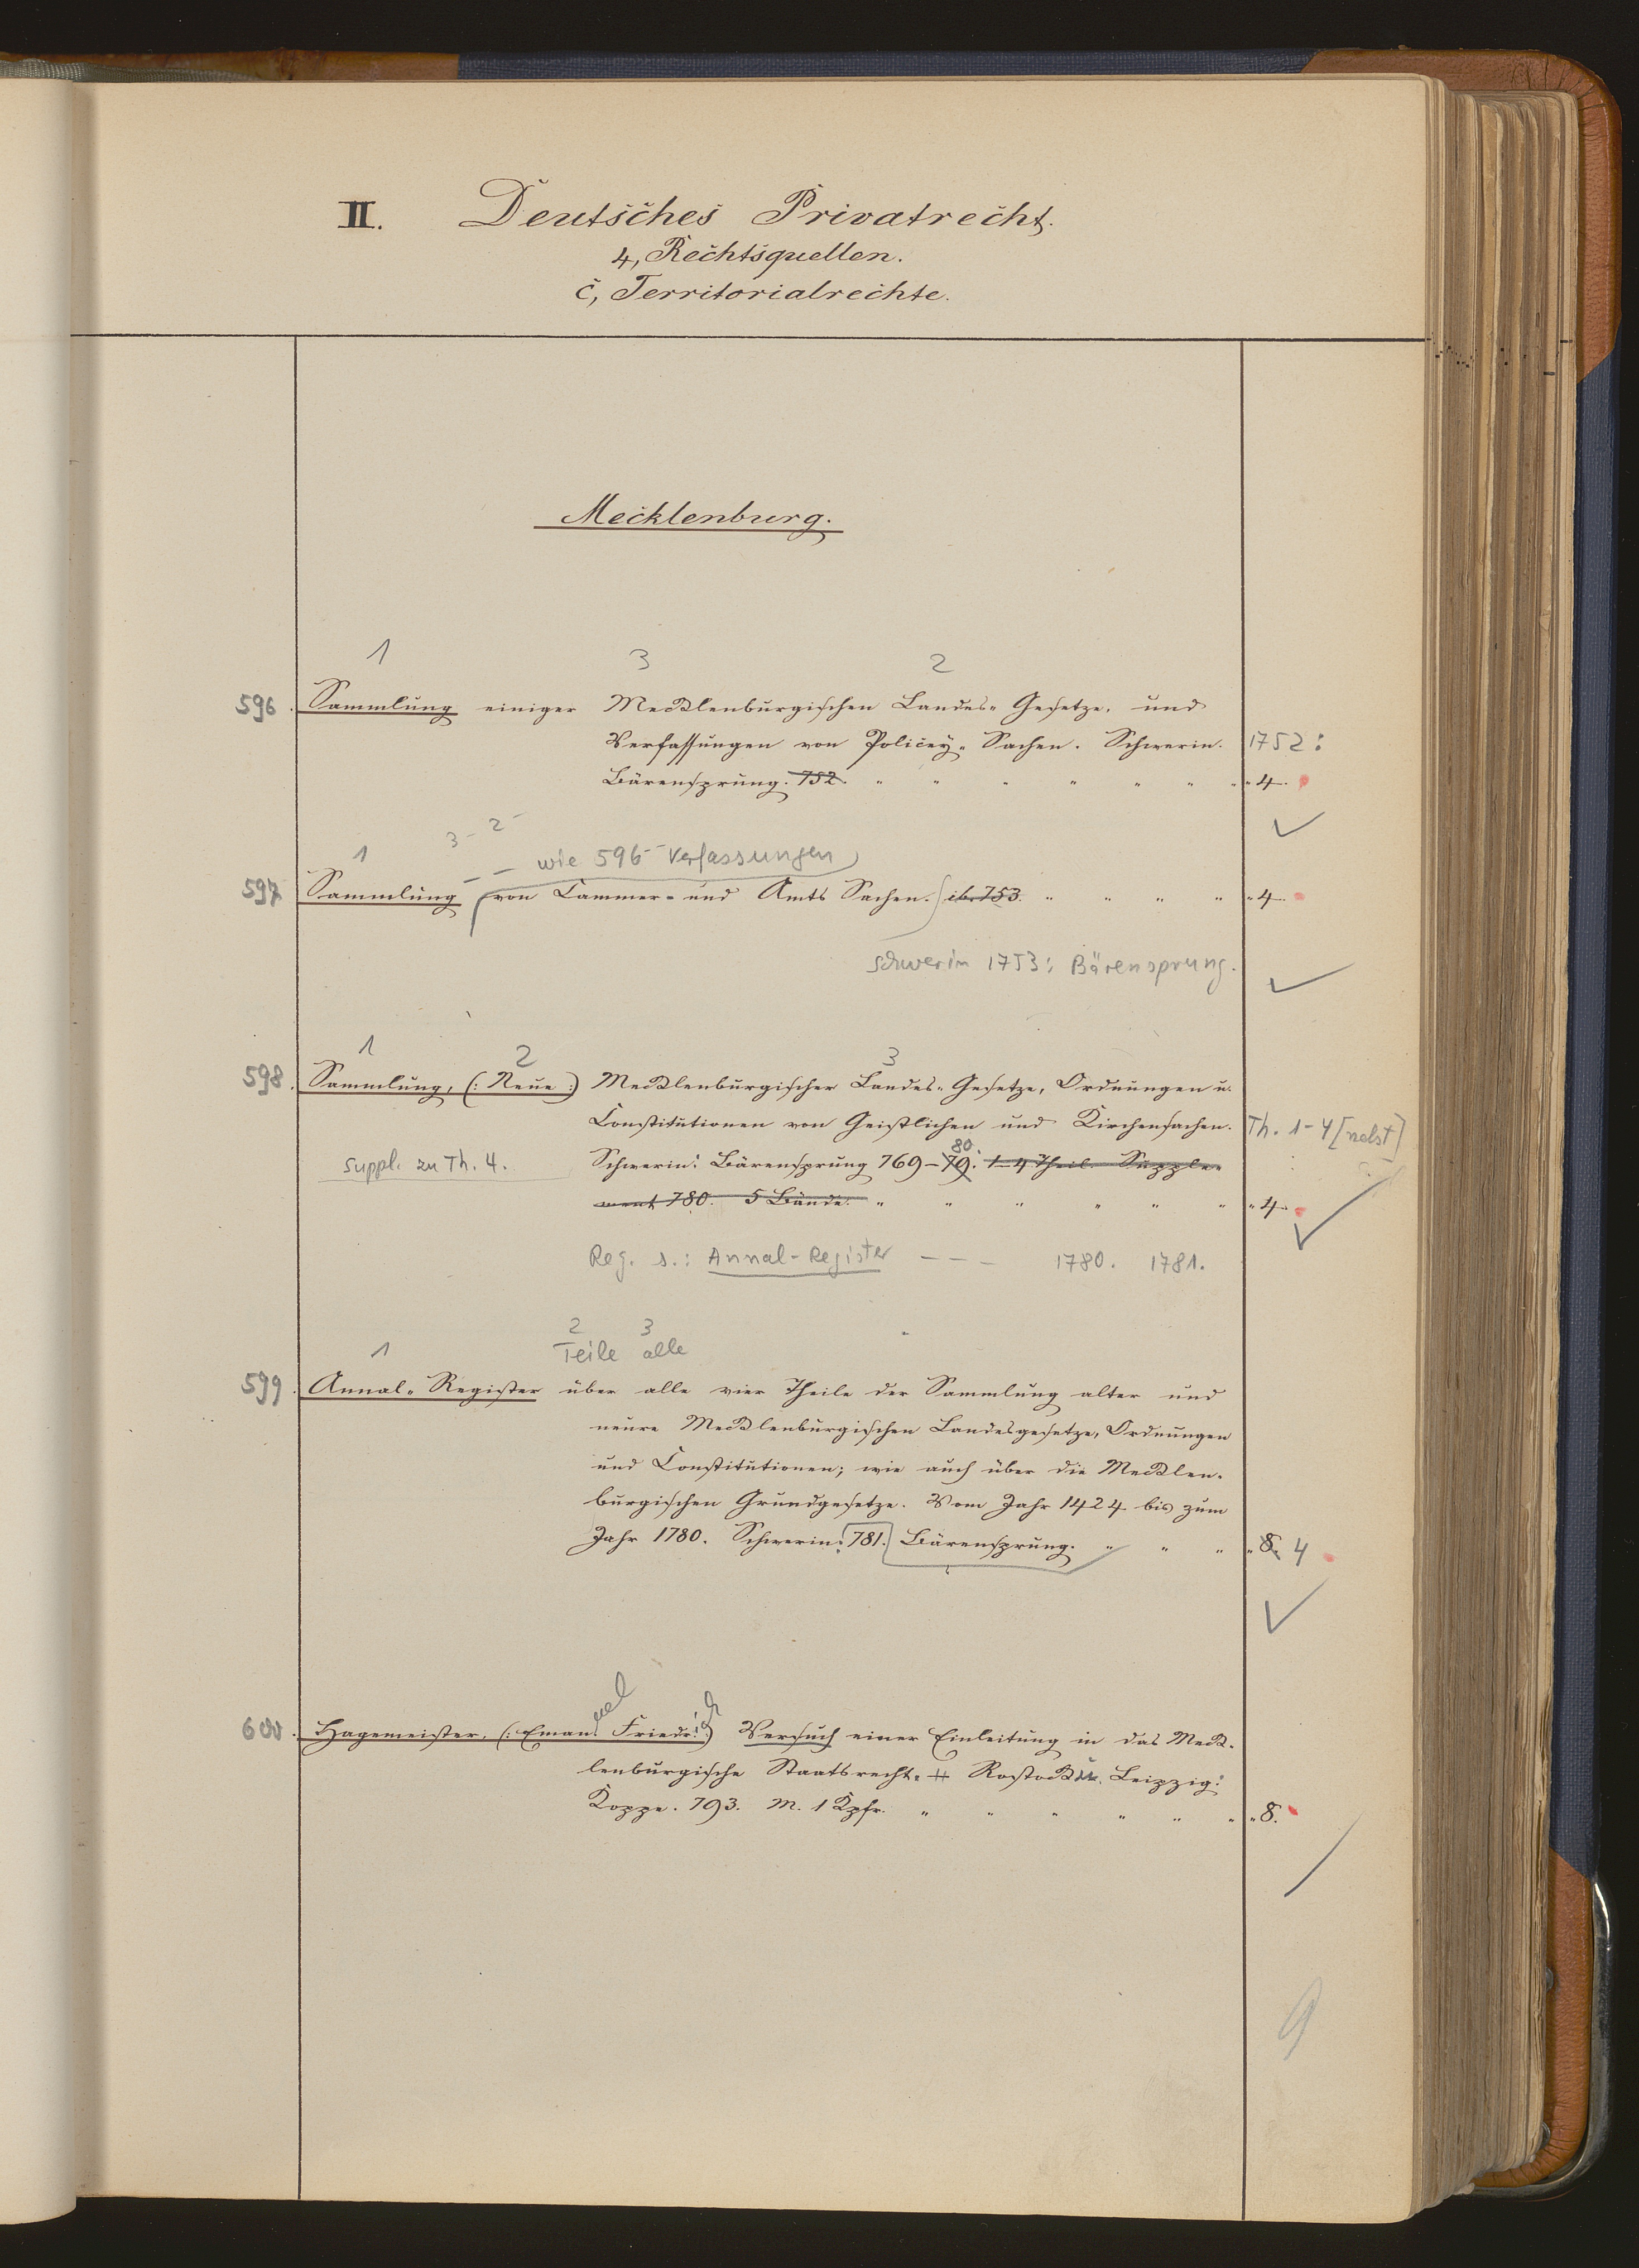 II. Deutsches Privatrecht.
4, Rechtsquellen.
c, Territorialrechte.
Mecklenburg.
1 3 2
596. Sammlung einiger Mecklenburgischen Landes-Gesetze, und
Verfassungen von Policey-Sachen. Schwerin. 1752:
Bärensprung. 752. " " " " " " " "4.
3- 2-
1 — — wie 596 - Verfassungen
597. Sammlung von Cammer- und Amts Sachen. ib. 753. " " " " "4.
Schwerin 1753: Bärensprung.
1 2 3
598. Sammlung, (: Neue :) Mecklenburgischer Landes-Gesetze, Ordnungen u.
Constitutionen von Geistlichen und Kirchensachen. Th. 1-4 [nebst]
80.
suppl. zu Th. 4. Schwerin: Bärensprung 769-79. 1-4 Theil. Supple-
ment 780. 5 Bände. " " " " " " "4.
Reg. s.: Annal-Register — — — 1780. 1781.
2 3
1 Teile alle
599. Annal-Register über alle vier Theile der Sammlung alter und
neure Mecklenburgischen Landesgesetze, Ordnungen
und Constitutionen; wie auch über die Mecklen-
burgischen Grundgesetze. Vom Jahr 1424 bis zum
Jahr 1780. Schwerin: 781. Bärensprung. " " " "8. 4
uel ich
600. Hagemeister, (: Eman. Friedr. :) Versuch einer Einleitung in das Meck-
lenburgische Staatsrecht. # Rostock u. Leipzig:
Koppe. 793. M. 1 Kpfr. " " " " " " "8.
9